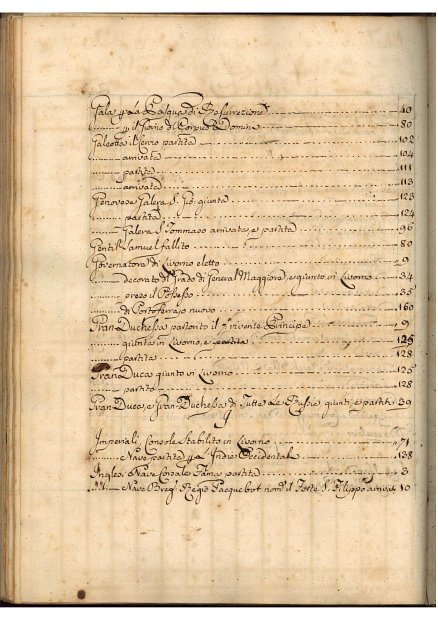 Gala p la Pasqua di Resurrezione 40
p il Giorno di Corpus Domini 80
Galeotta il Cervo partita 102
arrivata 104
partita 111
arrivata 113
Genovese Galera S. Gio. giunta 123
partita 124
Galera S. Tommaso arrivata, e partita 96
Gentil Samuel fallito 80
Governatore di Livorno eletto 9
decorato di Grado di General Maggiore, e giunto in Livorno 34
preso il Possesso 35
di Portoferrajo nuovo 160
Gran Duchessa partorito il vivente Principe 9
giunta in Livorno, e partita 125
partita 128
Gran Duca giunto in Livorno 125
partito 128
Gran Duca, e Gran Duchessa di Tutte le Russie giunti, e partiti 39
Imperiali Stabilito in Livorno 71
Nave partita p le Indie Occidentali 138
Inglesi Nave Fama partita 3
Nave Regio Pacquebot nom. il Forte S. Filippo arrivato 10